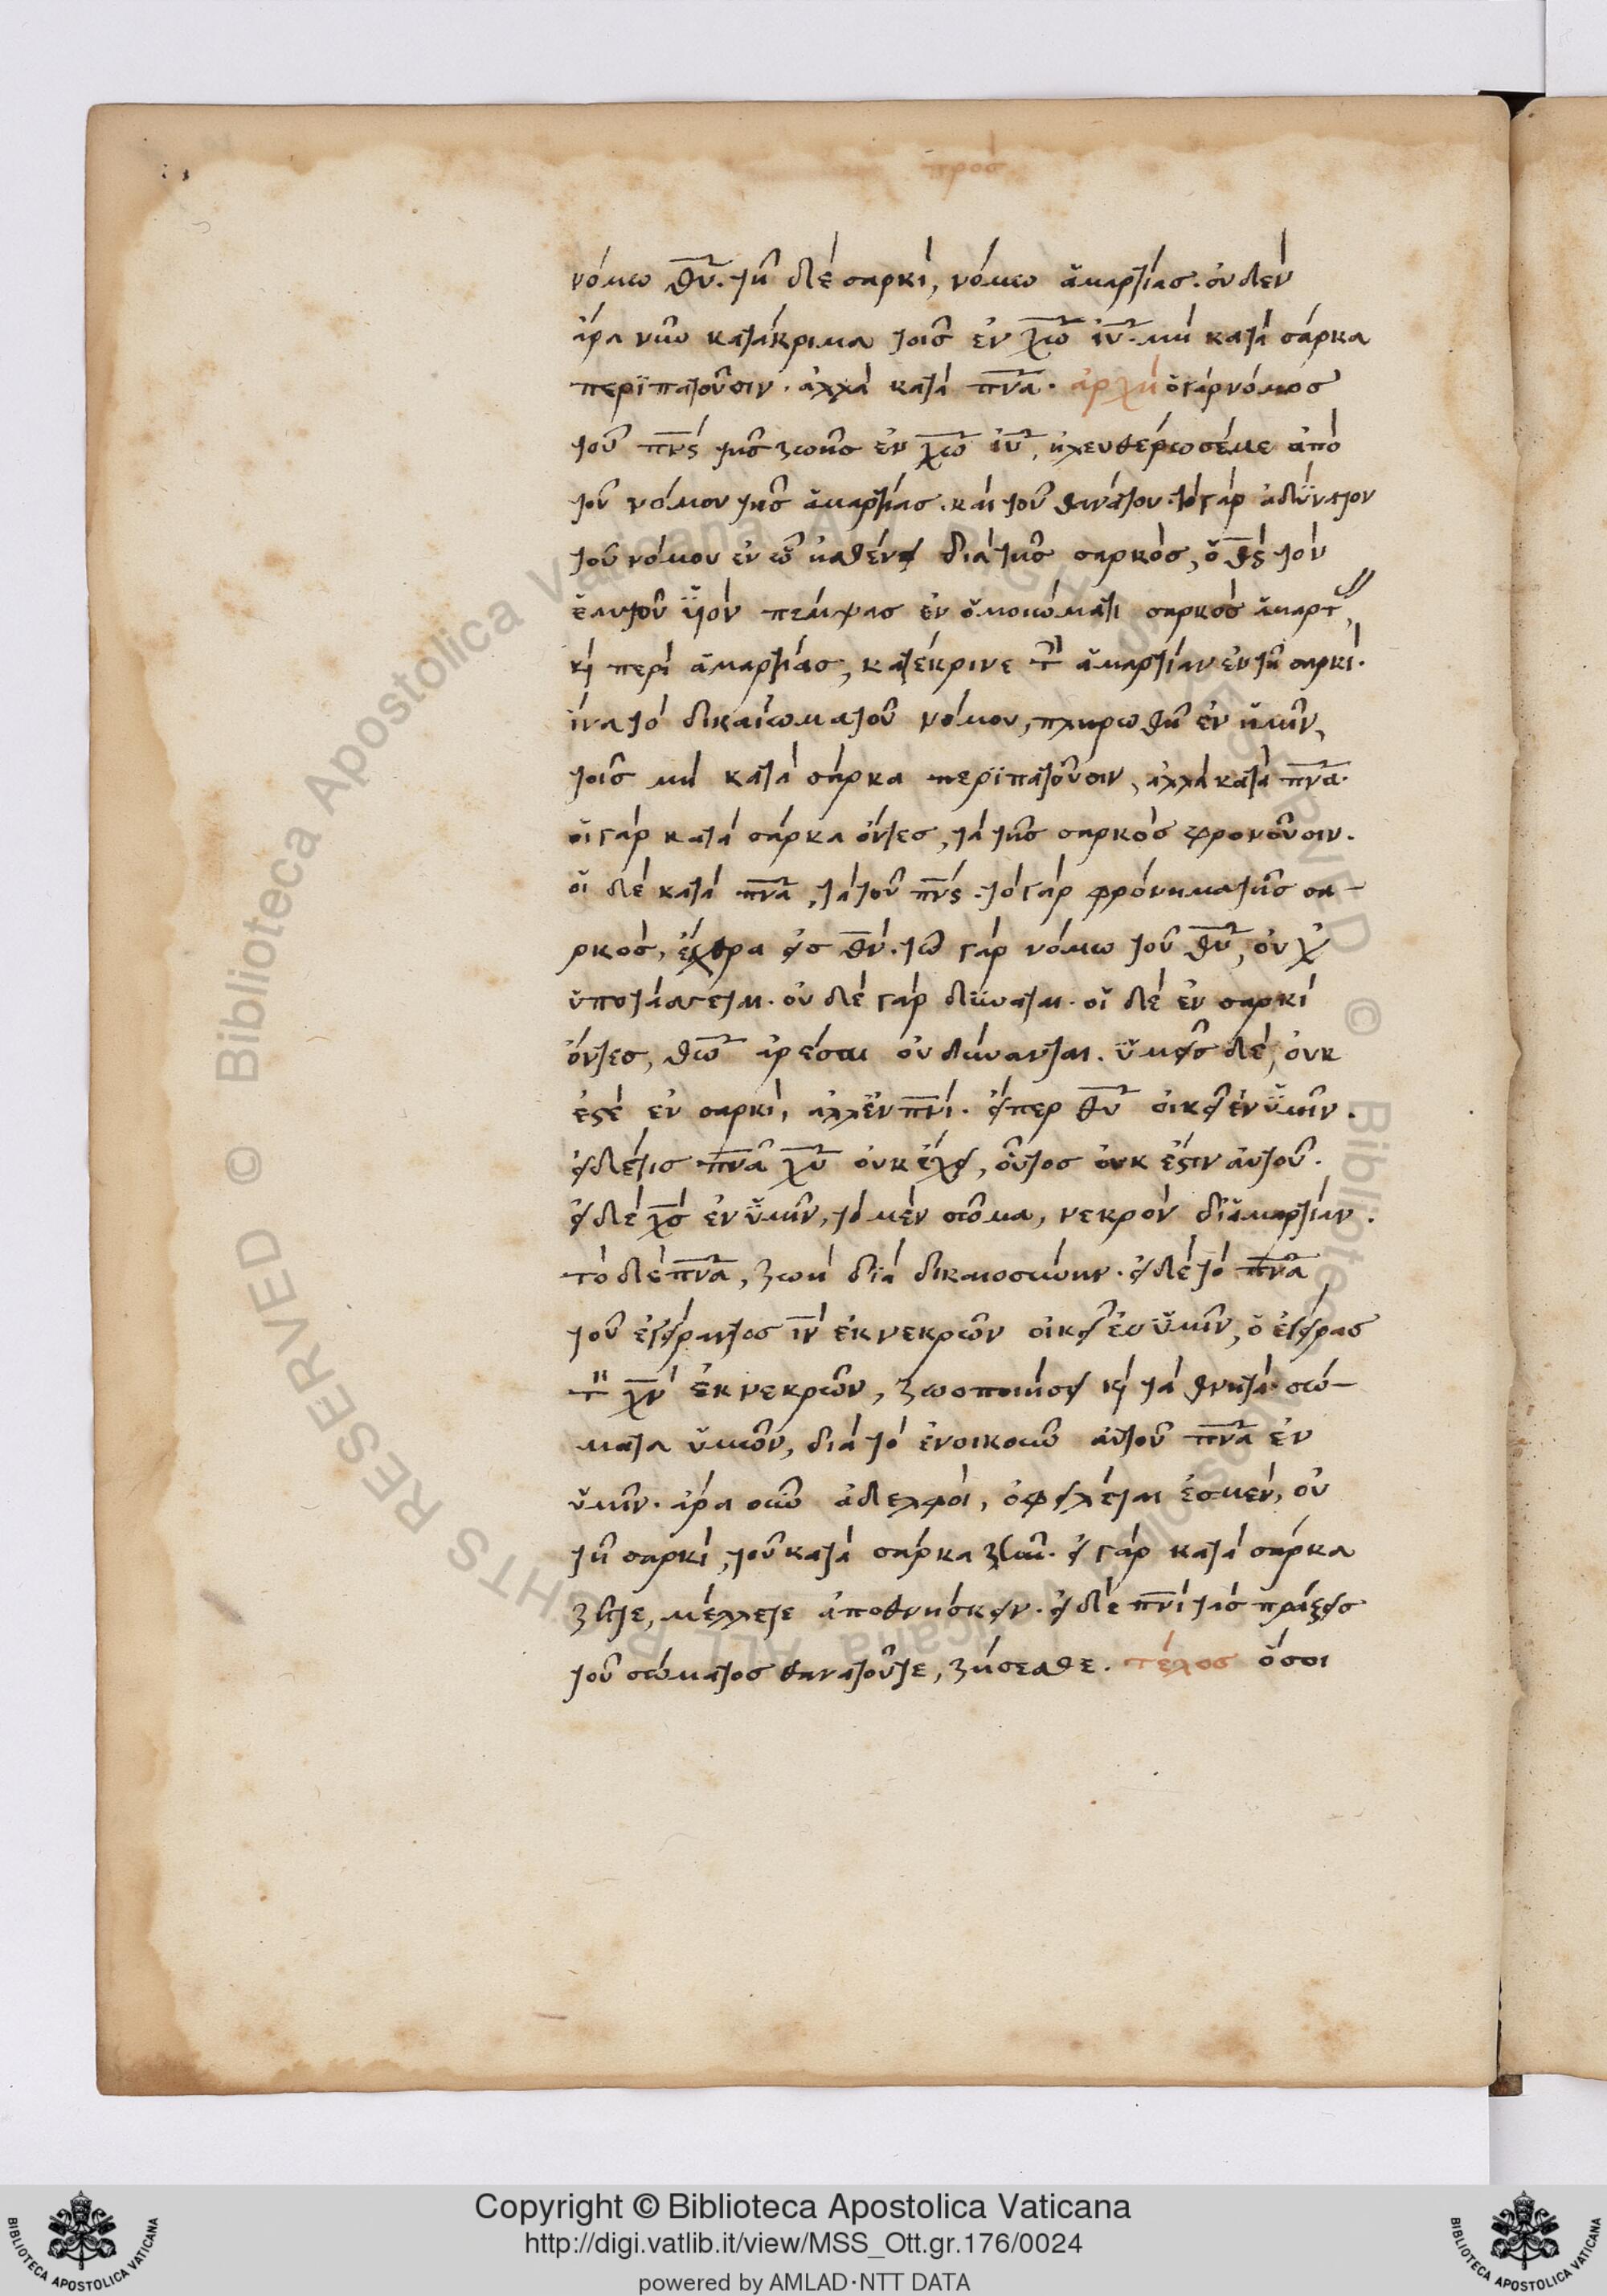 προσ
νόμω θῡ. τῆ δὲ σαρκὶ, νόμω ἁμαρτίασ. οὐδὲν
ἄρα νῦν κατάκριμα τοῖσ ἐν χ̅ω̅ ἰ̅υ̅. μὴ κατὰ σάρκα
περϊπατοῦσιν. ἀλλὰ κατὰ π̅ν̅α̅. ἀρχὴ ὁ γὰρ νόμοσ
τοῦ π̅ν̅ς̅ τῆσ ζωῆσ ἐν χ̅ω̅ ἰ̅υ̅, ἠλευθέρωσέ με ἀπὸ
τοῦ νόμου τῆσ ἁμαρτίασ. καὶ τοῦ θανάτου. τὸ γὰρ ἀδύνατον
τοῦ νόμου ἐν ὧ ἠσθένει διὰ τῆσ σαρκὸσ, ὁ θ̅ς̅ τὸν
ἑαυτοῦ ὑϊὸν πέμψασ ἐν ὁμοιώματι σαρκὸσ ἁμαρτ
κὶ περὶ ἁμαρτίασ, κατέκρινε τ̅ ἁμαρτίαν ἐν τῆ σαρκί.
ἵνα τὸ δικαίωμα τοῦ νόμου, πληρωθῆ ἐν ἡμῖν,
τοῖσ μὴ κατὰ σάρκα περϊπατοῦσιν, ἀλλὰ κατὰ π̅ν̅α̅.
οἱ γὰρ κατὰ σάρκα ὄντεσ, τὰ τῆσ σαρκὸσ φρονοῦσιν.
οἱ δὲ κατὰ π̅ν̅α̅, τὰ τοῦ π̅ν̅ς̅. τὸ γὰρ φρόνημα τῆσ σα-
ρκὸσ, ἔχθρα εἰσ θ̅ν̅. τῶ γὰρ νόμω τοῦ θ̅υ̅, οὐχ
ὑποτάσσεται. οὐδὲ γὰρ δύναται. οἱ δὲ ἐν σαρκὶ
ὄντεσ, θ̅ω̅ ἀρέσαι οὐ δύνανται. ὑμεῖσ δὲ, οὐκ
ἐςὲ ἐν σαρκὶ, ἀλλ' ἐν π̅ν̅ι̅. εἴπερ θ̅υ̅ οἰκεῖ ἐν ὑμῖν.
εἰ δέ τισ π̅ν̅α̅ χ̅υ̅ οὐκ ἔχει, οὗτοσ οὐκ ἔςιν αὐτοῦ.
εἰ δὲ χ̅σ̅ ἐν ὑμῖν, τὸ μὲν σῶμα, νεκρὸν δι' ἁμαρτίαν.
τὸ δὲ π̅ν̅α̅, ζωὴ διὰ δικαιοσύνην. εἰ δὲ τὸ π̅ν̅α̅
τοῦ ἐγείραντοσ ι̅ν̅ ἐκ νεκρῶν οἰκεῖ ἐν ὑμῖν, ὁ ἐγείρασ
τ̅ χ̅ν̅ ἐκ νεκρῶν, ζωοποιήσει κὶ τὰ θνητὰ σώ-
ματα ὑμῶν, διὰ τὸ ἐνοικοῦν αὐτοῦ π̅ν̅α̅ ἐν
ὑμῖν. ἄρα οὖν ἀδελφοὶ, ὀφειλέται ἐσμὲν, οὐ
τῆ σαρκὶ, τοῦ κατὰ σάρκα ζῆν. εἰ γὰρ κατὰ σάρκα
ζῆτε, μέλλετε ἀποθνήσκειν. εἰ δὲ π̅ν̅ι̅ τὰσ πράξεισ
τοῦ σώματοσ θανατοῦτε, ζήσεσθε. τέλοσ ὅσοι
Copyright © Biblioteca Apostolica Vaticana
http://digi.vatlib.it/view/MSS_Ott.gr.176/0024
powered by AMLAD·NTT DATA
BIBLIOTECA APOSTOLICA VATICANA
BIBLIOTECA APOSTOLICA VATICANA